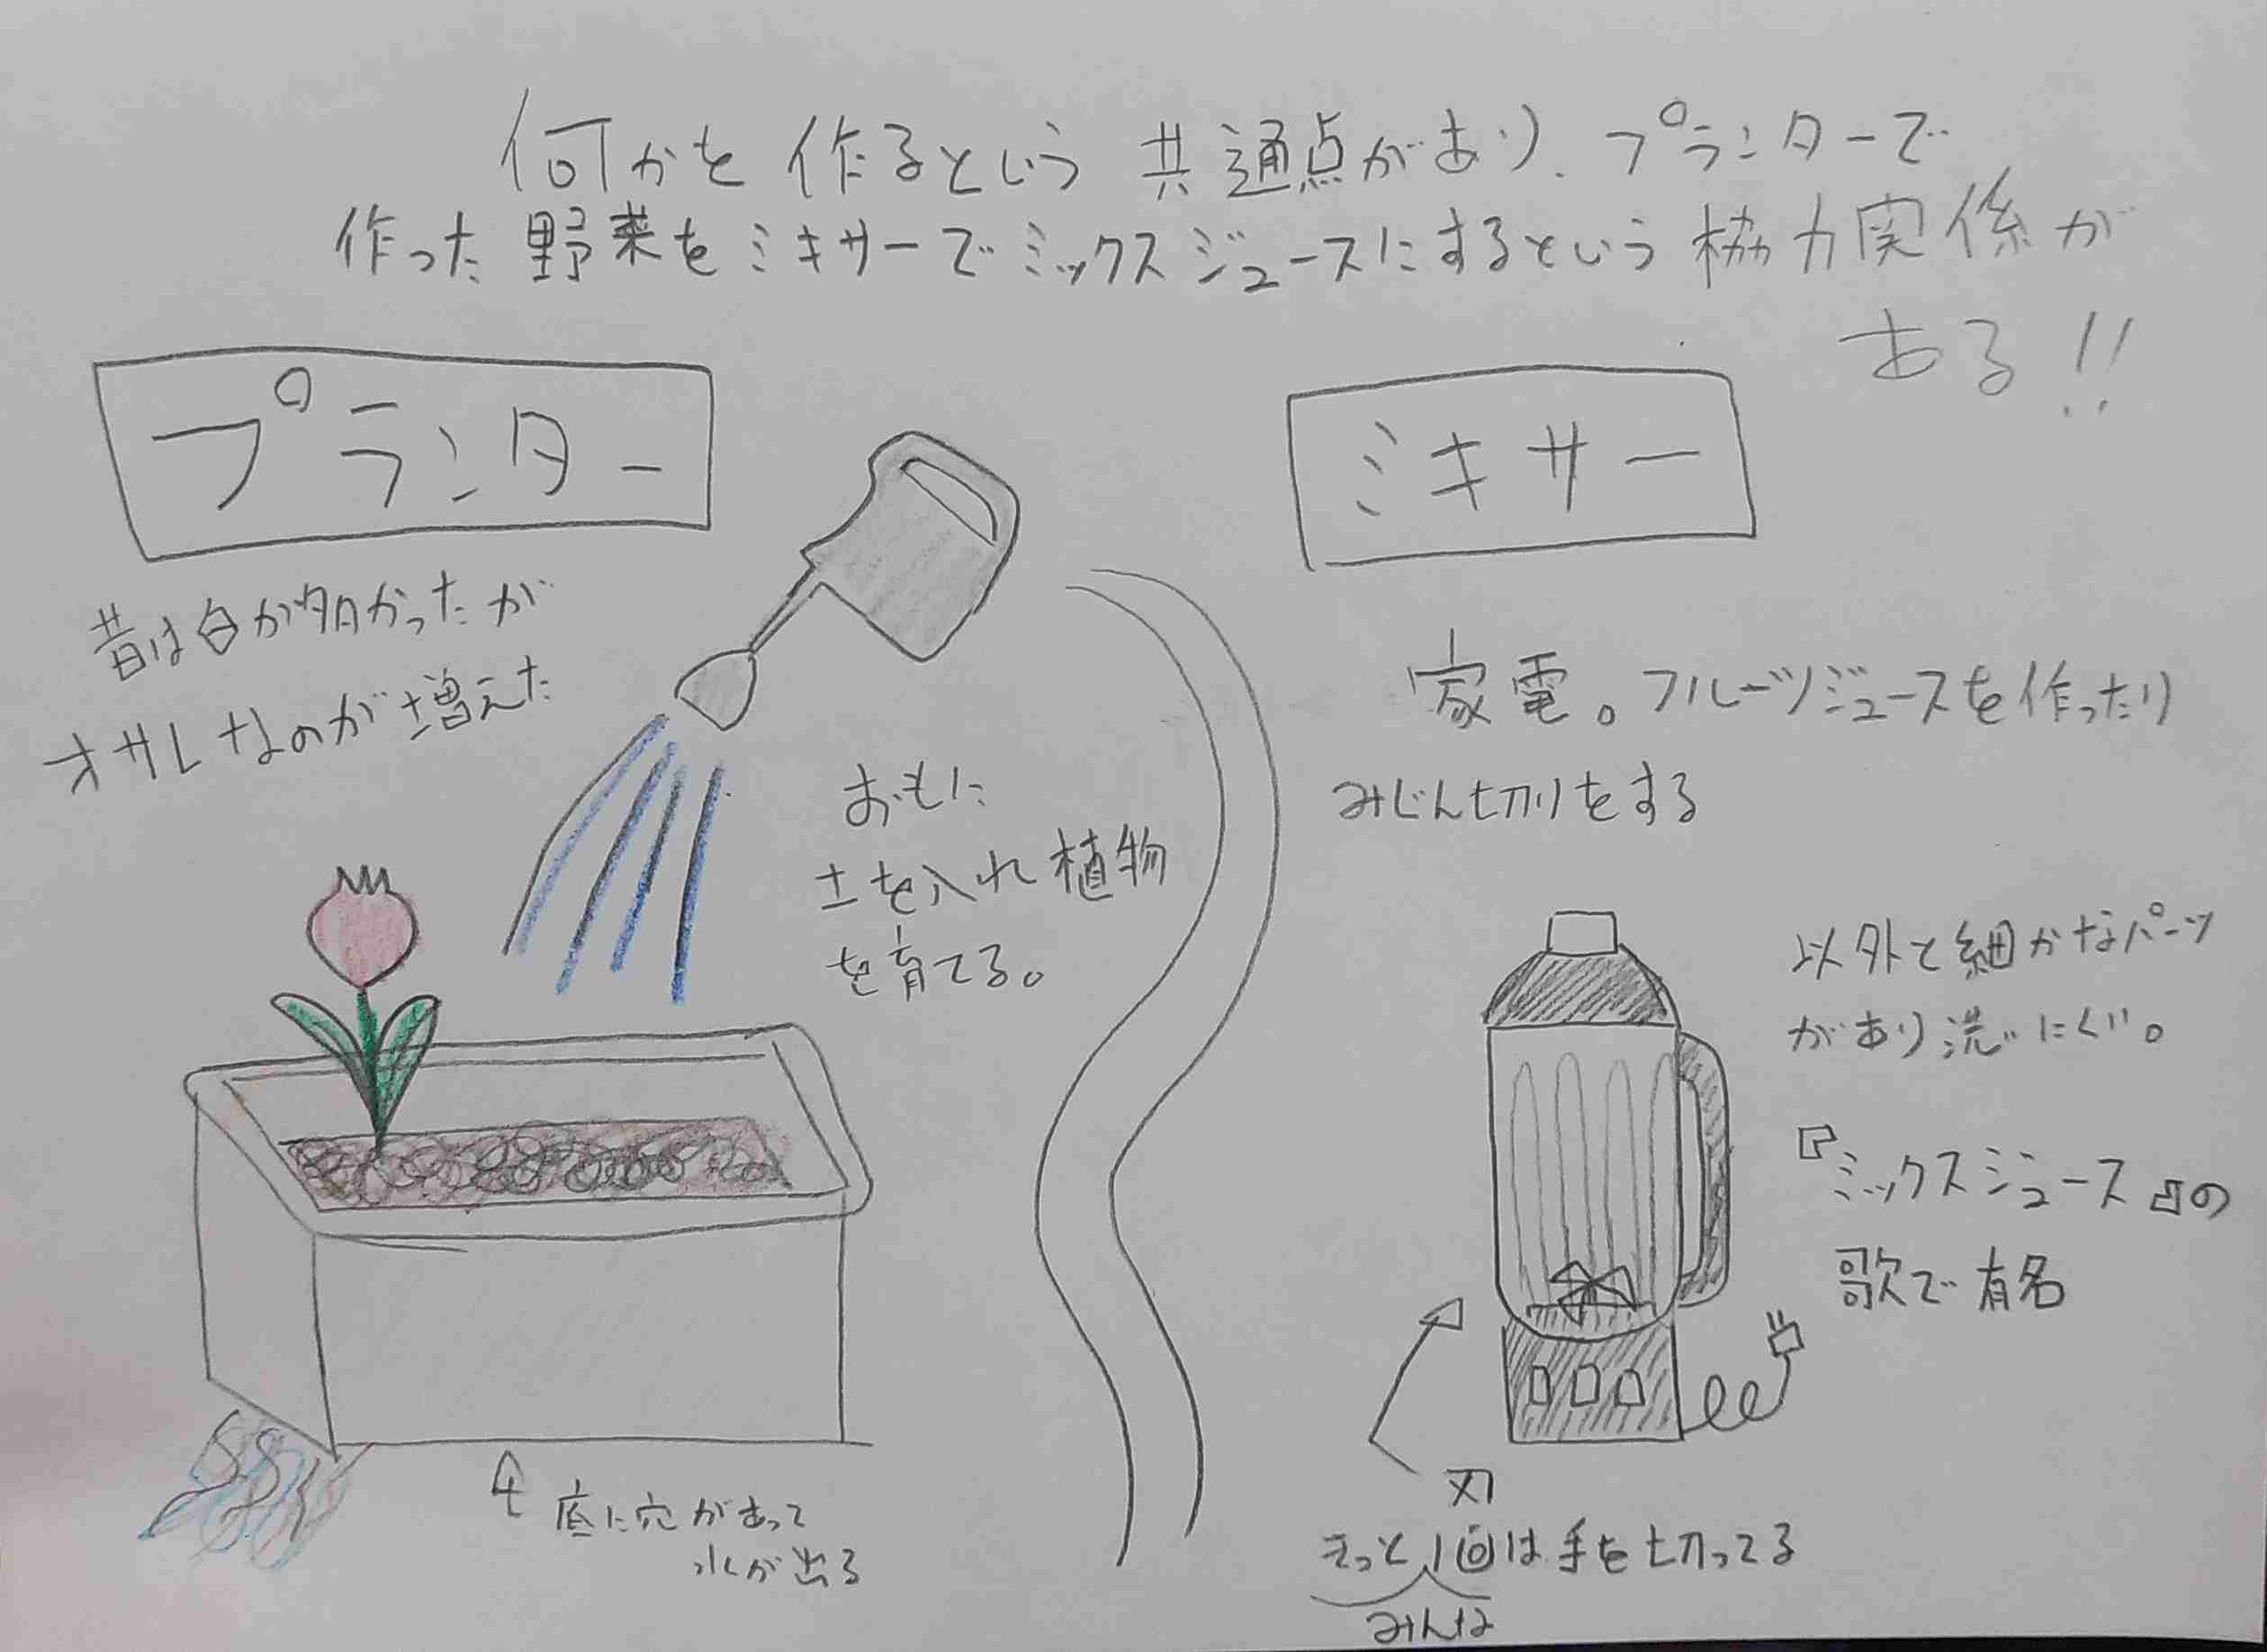 何かを作るという共通点があり、プランターで
作った野菜をミキサーでミックスジュースにするという協力関係が
ある!!
プランター
昔は白が多かったが
オサレなのが増えた
おもに
土を入れ植物
を育てる。
底に穴があって
水が出る
ミキサー
家電。フルーツジュースを作ったり
みじん切りをする
以外と細かなパーツ
があり洗いにくい。
『ミックスジュース』の
歌で有名
刃
きっと1回は手を切ってる
みんな